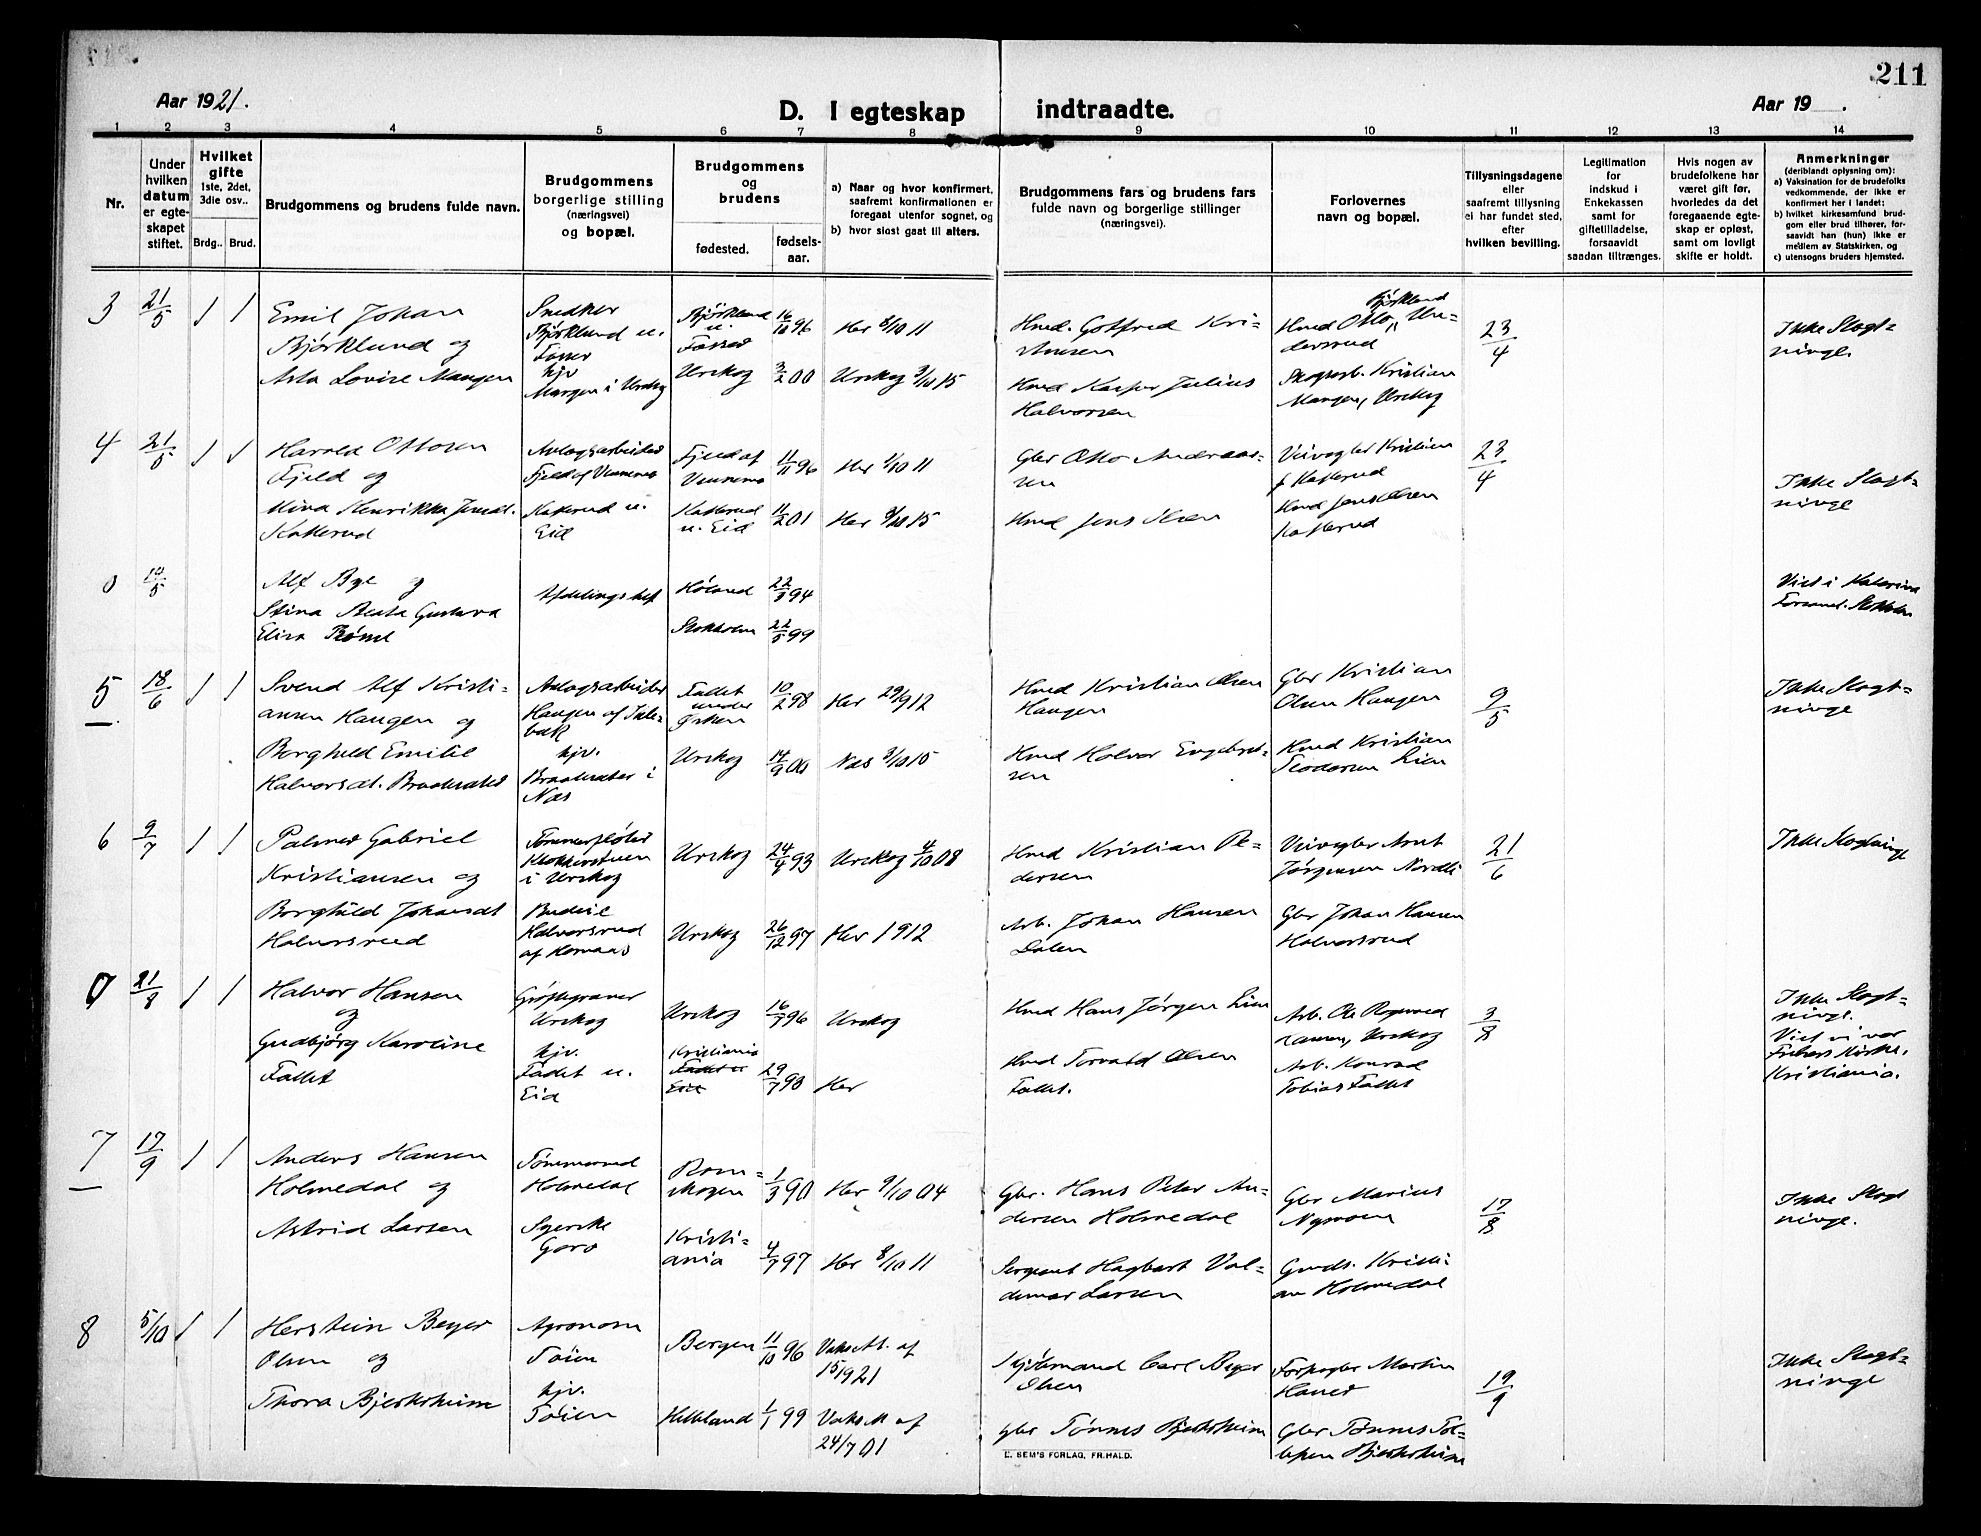 211
Aar 1921.
D. I egteskap indtraadte.
Aar 19 .
1 2 3 4 5 6 7 8 9 10 11 12 13 14
Nr.
Under hvilken datum er egte-skapet stiftet.
Hvilket gifte 1ste, 2det, 3die osv..
Brdg.. Brud.
Brudgommens og brudens fulde navn.
Brudgommens borgerlige stilling (næringsvei) og bopæl.
Brudgommens og brudens
fødested.
fødsels-aar.
a) Naar og hvor konfirmert, saafremt konfirmationen er foregaat utenfor sognet, og
b) hvor sidst gaat til alters.
Brudgommens fars og brudens fars fulde navn og borgerlige stillinger (næringsvei).
Forlovernes navn og bopæl.
Tillysningsdagene eller saafremt tillysning ei har fundet sted, efter hvilken bevilling.
Legitimation for indskud i Enkekassen samt for giftetilladelse, forsaavidt saadan tiltrænges.
Hvis nogen av brudefolkene har været gift før, hvorledes da det foregaaende egte-skap er opløst, samt om lovligt skifte er holdt.
Anmerkninger (deriblandt oplysning om):
a) Vaksination for de brudefolks vedkommende, der ikke er konfirmert her i landet;
b) hvilket kirkesamfund brud-gom eller brud tilhører, for-saavidt han (hun) ikke er medlem av Statskirken, og
c) utensogns bruders hjemsted.
3 21/5 1 1
Emil Johan
Bjørklund og
Asta Lovise Mangen
Snedker
Bjørklund u.
Fosser
hjv
Mangen i Urskog
Bjørklund
u.
Fosser
16/10 96
Her 8/10 11
Urskog 3/2 00 Urskog 3/10 15
Hmd. Gotfred Kri-
stiansen
Hmd Kasper Julius
Halvorsen
Bjørklund
Hmd Otto Un-
dersrud
Skogsarb. Kristian
Mangen, Urskog
23/4
Ikke Slegt-
ninge.
4 21/5 1 1
Harald Ottosen
Fjeld og
Mina Henrikke Jensdt.
Katterud
Anlægsarbeider
Fjeld af Vennemo
Katterud u.
Eid
Fjeld af
Vennemo
11/11 96
Her 1/10 11
Katterud
u. Eid
11/2 01
Her 3/10 15
Gbr Otto Andreas-
sen
Hmd Jens Olsen
Veivogter Kristian
Katterud
Hmd Jens Olsen
Katterud
23/4
Ikke Slegt-
ninge
0 10/5
Alf Bye og
Stina Beata Gustava
Elisa
Afdelingschef
Høland 22/8 94
Stokholm 22/5 99
Viet i Katarina
Forsaml. Stokholm
5 18/6 1 1
Svend Alf Kristi-
ansen Haugen og
Borghild Emilie
Halvorsdt. Braatesæter
Anlægsarbeider
Haugen af Tale-
bak
hjv.
Braatesæter i
Næs
Fallet
under
10/2 98
Her 29/9 12
Urskog 14/9 00 Næs 3/10 15
Hmd Kristian Olsen
Haugen
Hmd Halvor Engebret-
sen
Gbr Kristian
Olsen Haugen
Hmd Kristian
Teodorsen Lien
9/5
Ikke Slegt-
ninge
6 9/7 1 1
Palmer Gabriel
Kristiansen og
Borghild Johansdt
Halvorsrud
Tømmerfløter
Klokkerstuen
i Urskog
Budeie
Halvorsrud
af Komaas
Urskog 24/4 93 Urskog 4/10 08
Urskog 26/12 97 Her 1912
Hmd Kristian Pe-
dersen
Arb. Johan Hansen
Dalen
Veivogter Arnt
Jørgensen Nordli
Gbr Johan Hansen
Halvorsrud
21/6
Ikke Slegtninge
0 21/8 1 1
Halvor Hansen
og
Gudbjørg Karoline
Fallet
Grøftegraver
Urskog
hjv.
Fallet u.
Eid
Urskog 16/7 96 Urskog
Kristiania
Fallet u
Eid
29/7 90
Her
Hmd Hans Jørgen Lien
Hmd Torvald Olsen
Fallet.
Arb. Ole Ragnvald
Hansen, Urskog
Arb. Konrad
Tobias Fallet
3/8
Ikke Slegt-
ninge.
Viet i vor
Frelsers Kirke,
Kristiania.
7 17/9 1 1
Anders Hansen
Holmedal og
Astrid Larsen
Tømmermand
Holmedal
Syerske
Rom-
skogen
1/3 90
Her 9/10 04
Kristi-
ania
4/7 97
Her 8/10 11
Gbr. Hans Peter An-
dersen Holmedal
Sergeant Hagbart Val-
demar Larsen
Gbr Marius
Nymoen
Gmds. Kristi-
an Holmedal
17/8
Ikke Slegt
ninge.
8 5/10 1 1
Herstein Beyer
Olsen og
Thora Bjerksheim
Agronom
Tøien
hjv.
Tøien
Bergen 11/10 96 Vaks At. af
15/9 21
Helleland 1/1 99 Vaks At af
24/7 01
Skydsmand Carl Beyer
Olsen
Gbr Tønnes Bjerksheim
Forpagter Martin
Haner
Gbr Tønnes Tol-
lefsen Bjerksheim
19/9
Ikke Slegt-
ninge
E. SEM'S FORLAG, FR.HALD.